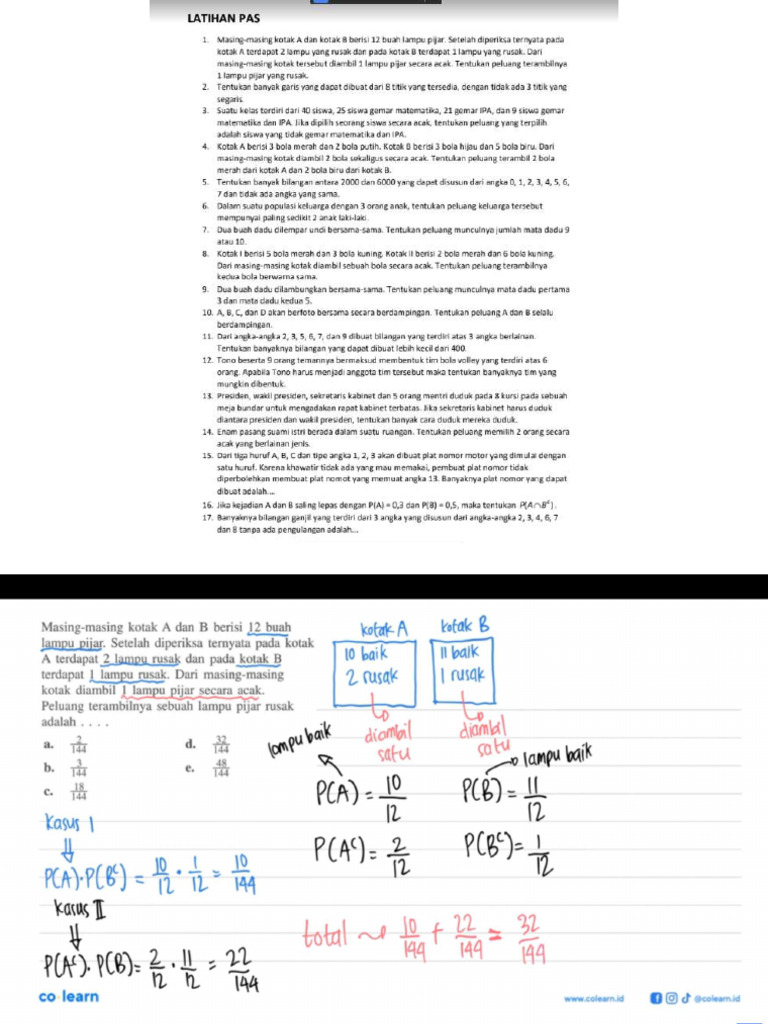 LATIHAN PAS
1. Masing-masing kotak A dan kotak B berisi 12 buah lampu pijar. Setelah diperiksa ternyata pada
kotak A terdapat 2 lampu yang rusak dan pada kotak B terdapat 1 lampu yang rusak. Dari
masing-masing kotak tersebut diambil 1 lampu pijar secara acak. Tentukan peluang terambilnya
1 lampu pijar yang rusak.
2. Tentukan banyak garis yang dapat dibuat dari 8 titik yang tersedia, dengan tidak ada 3 titik yang
segaris.
3. Suatu kelas terdiri dari 40 siswa, 25 siswa gemar matematika, 21 gemar IPA, dan 9 siswa gemar
matematika dan IPA. Jika dipilih seorang siswa secara acak, tentukan peluang yang terpilih
adalah siswa yang tidak gemar matematika dan IPA.
4. Kotak A berisi 3 bola merah dan 2 bola putih. Kotak B berisi 3 bola hijau dan 5 bola biru. Dari
masing-masing kotak diambil 2 bola sekaligus secara acak. Tentukan peluang terambil 2 bola
merah dari kotak A dan 2 bola biru dari kotak B.
5. Tentukan banyak bilangan antara 2000 dan 6000 yang dapat disusun dari angka 0, 1, 2, 3, 4, 5, 6,
7 dan tidak ada angka yang sama.
6. Dalam suatu populasi keluarga dengan 3 orang anak, tentukan peluang keluarga tersebut
mempunyai paling sedikit 2 anak laki-laki.
7. Dua buah dadu dilempar undi bersama-sama. Tentukan peluang munculnya jumlah mata dadu 9
atau 10.
8. Kotak I berisi 5 bola merah dan 3 bola kuning. Kotak II berisi 2 bola merah dan 6 bola kuning.
Dari masing-masing kotak diambil sebuah bola secara acak. Tentukan peluang terambilnya
kedua bola berwarna sama.
9. Dua buah dadu dilambungkan bersama-sama. Tentukan peluang munculnya mata dadu pertama
3 dan mata dadu kedua 5.
10. A, B, C, dan D akan berfoto bersama secara berdampingan. Tentukan peluang A dan B selalu
berdampingan.
11. Dari angka-angka 2, 3, 5, 6, 7, dan 9 dibuat bilangan yang terdiri atas 3 angka berlainan.
Tentukan banyaknya bilangan yang dapat dibuat lebih kecil dari 400.
12. Tono beserta 9 orang temannya bermaksud membentuk tim bola volley yang terdiri atas 6
orang. Apabila Tono harus menjadi anggota tim tersebut maka tentukan banyaknya tim yang
mungkin dibentuk.
13. Presiden, wakil presiden, sekretaris kabinet dan 5 orang mentri duduk pada 8 kursi pada sebuah
meja bundar untuk mengadakan rapat kabinet terbatas. Jika sekretaris kabinet harus duduk
diantara presiden dan wakil presiden, tentukan banyak cara duduk mereka duduk.
14. Enam pasang suami istri berada dalam suatu ruangan. Tentukan peluang memilih 2 orang secara
acak yang berlainan jenis.
15. Dari tiga huruf A, B, C dan tipe angka 1, 2, 3 akan dibuat plat nomor motor yang dimulai dengan
satu huruf. Karena khawatir tidak ada yang mau memakai, pembuat plat nomor tidak
diperbolehkan membuat plat nomot yang memuat angka 13. Banyaknya plat nomor yang dapat
dibuat adalah...
16. Jika kejadian A dan B saling lepas dengan P(A) = 0,3 dan P(B) = 0,5, maka tentukan P(A∩Bᶜ).
17. Banyaknya bilangan ganjil yang terdiri dari 3 angka yang disusun dari angka-angka 2, 3, 4, 6, 7
dan 8 tanpa ada pengulangan adalah...
Masing-masing kotak A dan B berisi 12 buah
lampu pijar. Setelah diperiksa ternyata pada kotak
A terdapat 2 lampu rusak dan pada kotak B
terdapat 1 lampu rusak. Dari masing-masing
kotak diambil 1 lampu pijar secara acak.
Peluang terambilnya sebuah lampu pijar rusak
adalah . . . .
a. 2/144 d. 32/144
b. 3/144 e. 48/144
c. 18/144
kotak A kotak B
10 baik 11 baik
2 rusak 1 rusak
diambil satu diambil satu
lampu baik lampu baik
P(A) = 10/12 P(B) = 11/12
P(Aᶜ) = 2/12 P(Bᶜ) = 1/12
Kasus I
P(A).P(Bᶜ) = 10/12 · 1/12 = 10/144
Kasus II
P(Aᶜ). P(B) = 2/12 · 11/12 = 22/144
total ~> 10/144 + 22/144 = 32/144
co learn
www.colearn.id @colearn.id